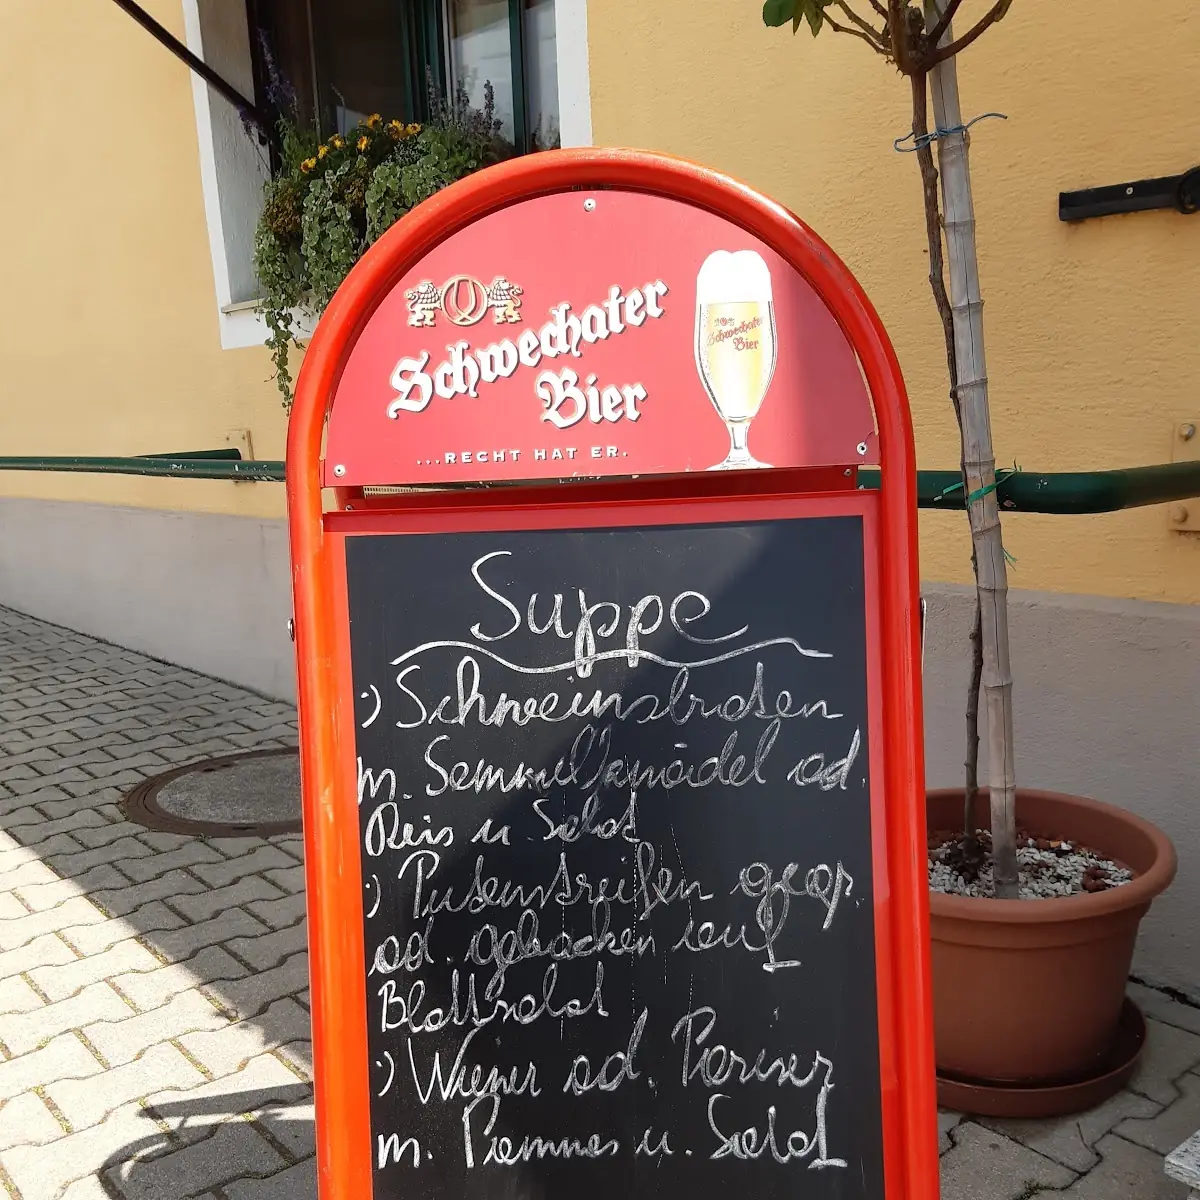 Schwechater
Bier
...RECHT HAT ER.
Schwechater
Bier
Suppe
:) Schweinsbraten
m. Semmelknödel od.
Reis u. Salat
:) Putenstreifen geg.
od. gebacken auf
Blattsalat
:) Wiener od. Pariser
m. Pommes u. Salat